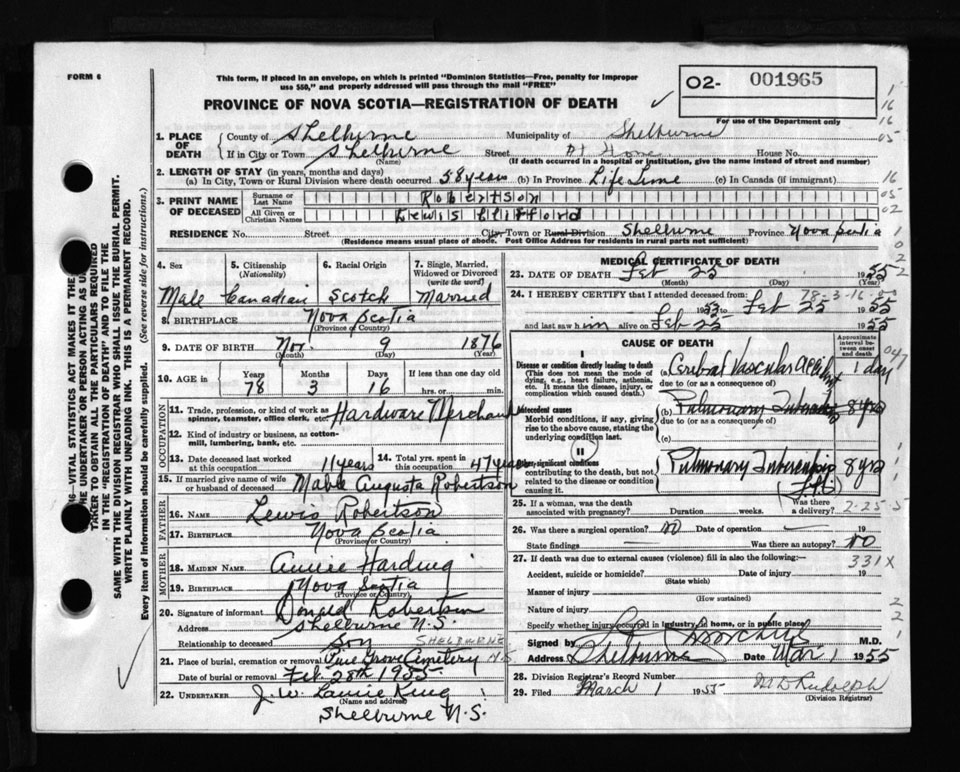 FORM 6
This form, if placed in an envelope, on which is printed "Dominion Statistics—Free, penalty for improper
use $50," and properly addressed will pass through the mail "FREE"
02- 001965
For use of the Department only
PROVINCE OF NOVA SCOTIA—REGISTRATION OF DEATH
1. PLACE OF DEATH
County of Shelburne Municipality of Shelburne
If in City or Town Shelburne Street At Home House No.
(Name) (If death occurred in a hospital or institution, give the name instead of street and number)
2. LENGTH OF STAY (in years, months and days)
(a) In City, Town or Rural Division where death occurred 58 years (b) In Province Life Time (c) In Canada (if immigrant)
3. PRINT NAME OF DECEASED
Surname or Last Name Robertson
All Given or Christian Names Lewis Clifford
RESIDENCE No. Street City, Town or Rural Division Shelburne Province Nova Scotia
(Residence means usual place of abode. Post Office Address for residents in rural parts not sufficient)
4. Sex Male
5. Citizenship (Nationality) Canadian
6. Racial Origin Scotch
7. Single, Married, Widowed or Divorced (write the word) Married
8. BIRTHPLACE Nova Scotia
(Province or Country)
9. DATE OF BIRTH Nov. 9 1876
(Month) (Day) (Year)
10. AGE in Years 78 Months 3 Days 16 If less than one day old hrs. or min.
OCCUPATION
11. Trade, profession or kind of work as spinner, teamster, office clerk, etc. Hardware Merchant
12. Kind of industry or business, as cotton-mill, lumbering, bank, etc.
13. Date deceased last worked at this occupation 11 years
14. Total yrs. spent in this occupation 47 years
15. If married give name of wife or husband of deceased Mable Augusta Robertson
FATHER
16. NAME Lewis Robertson
17. BIRTHPLACE Nova Scotia
(Province or Country)
MOTHER
18. MAIDEN NAME Annie Harding
19. BIRTHPLACE Nova Scotia
(Province or Country)
20. Signature of informant Donald Robertson
Address Shelburne N.S.
Relationship to deceased Son
SHELBURNE
21. Place of burial, cremation or removal Pine Grove Cemetery N.S.
Date of burial or removal Feb. 28th 1955
22. UNDERTAKER J. W.
(Name and address)
Shelburne N.S.
MEDICAL CERTIFICATE OF DEATH
23. DATE OF DEATH Feb 25 1955
(Month) (Day) (Year)
24. I HEREBY CERTIFY that I attended deceased from:
78-3-16
1953 to Feb 25 1955
and last saw him alive on Feb 25 1955
CAUSE OF DEATH
Approximate interval between onset and death
I
Disease or condition directly leading to death
(This does not mean the mode of dying, e.g., heart failure, asthenia, etc. It means the disease, injury, or complication which caused death.)
(a) Cerebral Vascular Accident 1 day
due to (or as a consequence of)
Antecedent causes
Morbid conditions, if any, giving rise to the above cause, stating the underlying condition last.
(b) Pulmonary 8 yrs
due to (or as a consequence of)
(c)
II
Other significant conditions
contributing to the death, but not related to the disease or condition causing it.
Pulmonary 8 yrs
25. If a woman, was the death associated with pregnancy? Duration weeks. Was there a delivery?
2-25-5
26. Was there a surgical operation? no Date of operation —
State findings — Was there an autopsy? no
27. If death was due to external causes (violence) fill in also the following:—
331X
Accident, suicide or homicide? Date of injury 19
(State which)
Manner of injury
(How sustained)
Nature of injury
Specify whether injury occurred in industry, in home, or in public place
Signed by M.D.
Address Shelburne Date Mar 1 1955
28. Division Registrar's Record Number
29. Filed March 1 1955 M D Rudolph
(Division Registrar)
THE VITAL STATISTICS ACT MAKES IT THE
THE UNDERTAKER OR PERSON ACTING AS
TAKER TO OBTAIN ALL THE PARTICULARS REQUIRED
IN THE "REGISTRATION OF DEATH" AND TO FILE THE
SAME WITH THE DIVISION REGISTRAR WHO SHALL ISSUE THE BURIAL PERMIT.
WRITE PLAINLY WITH UNFADING INK. THIS IS A PERMANENT RECORD.
Every item of information should be carefully supplied. (See reverse side for instructions.)